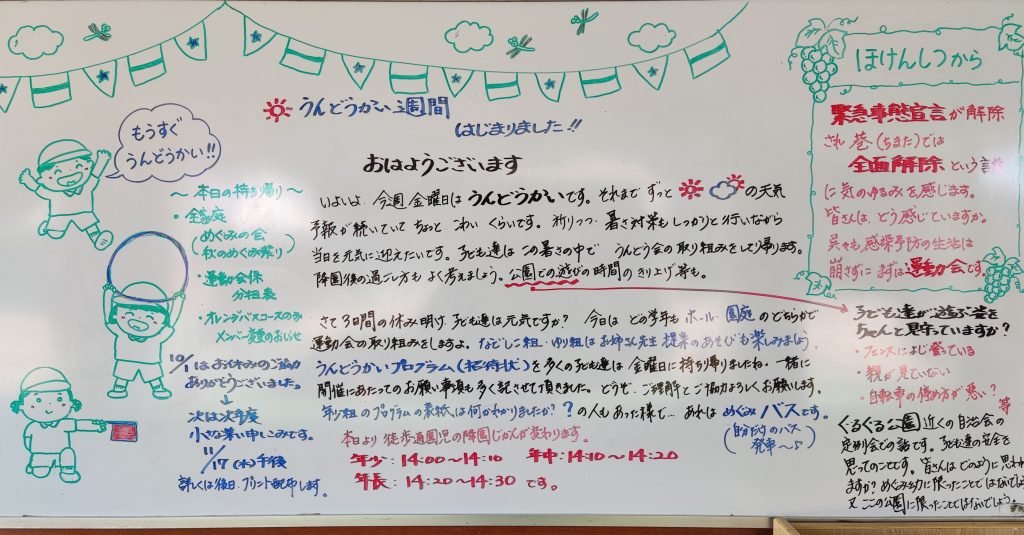 うんどうかい週間
はじまりました!!
もうすぐ
うんどうかい!!
おはようございます
いよいよ、今週金曜日はうんどうかいです。それまでずっと の天気
予報が続いていてちょっとこわいくらいです。祈りつつ・暑さ対策もしっかりと行いながら
当日を元気に迎えたいです。子ども達はこの暑さの中で うんどう会の取り組みをして帰ります。
降園後の過ごし方もよく考えましょう。公園での遊びの時間のきり上げ等も。
さて3日間の休み明け、子ども達は元気ですか? 今日はどの学年もホール・園庭のどちらかで
運動会の取り組みをしますよ。なでしこ組・ゆり組はお姉さん先生提案のあそびも楽しみましょう。
うんどうかいプログラム(招待状)を多くの子ども達は金曜日に持ち帰りましたね。一緒に
開催にあたってのお願い事項も多く記させて頂きました。どうぞ、ご理解とご協力よろしくお願いします。
年少組のプログラムの表紙は何かわかりましたか? ?の人もあった様で… あれはめぐみバスです。
(自分だけのバス
発車〜♪)
本日より徒歩通園児の降園じかんが変わります。
年少:14:00〜14:10 年中:14:10〜14:20
年長:14:20〜14:30 です。
〜本日の持ち帰り〜
・全家庭
(めぐみの会
秋のめぐみ祭り)
・運動会係
分担表
・オレンジバスコースのみ
メンバー変更のおしらせ
10/1はお休みのご協力
ありがとうございました。
↓
次は次年度
小さな集い申しこみです。
11/17(水)午後
詳しくは後日プリント配布します。
ほけんしつから
緊急事態宣言が解除
され巷(ちまた)では
全面解除という言葉
に気のゆるみを感じます。
皆さんは、どう感じていますか。
呉々も感染予防の生活は
崩さずにまずは運動会です。
子ども達が遊ぶ姿を
ちゃんと見守っていますか?
・フェンスによじ登っている
・親が見ていない
・自転車の停め方が悪い? 等
ぐるぐる公園近くの自治会の
定例会での話です。子ども達の安全を
思ってのことです。皆さんはどのように思われ
ますか?めぐみ幼に限ったことではないでしょう
又ここの公園に限ったことではないでしょう。